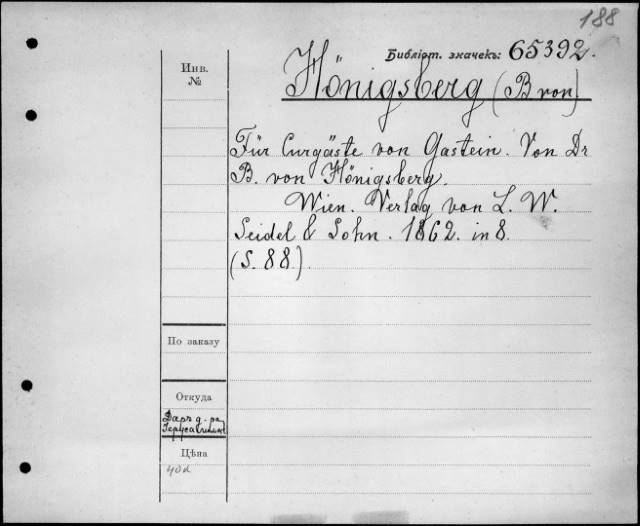 188
Библіот. значекъ: 65392.
Инв.
№
Hönigsberg (B von)
Für Curgäste von Gastein. Von Dr
B. von Hönigsberg.
Wien. Verlag von L. W.
Seidel & Sohn. 1862. in 8.
(S. 88.)
По заказу
Откуда
Даръ д-ра
Цѣна
40 к